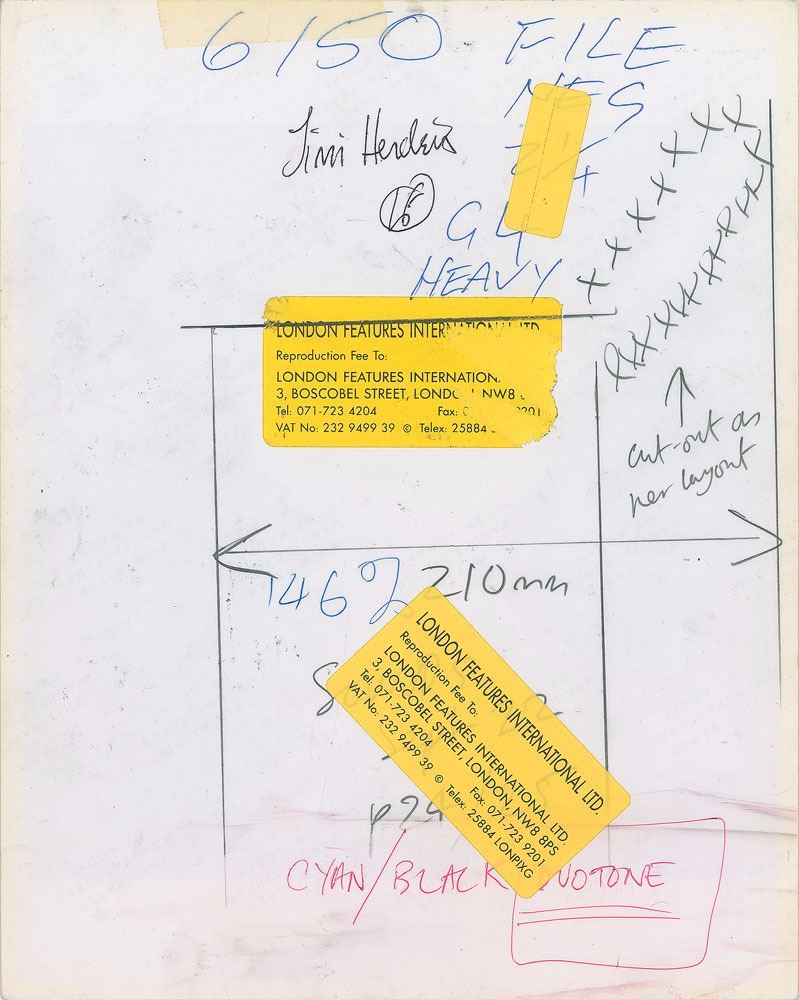 6150 FILE
Jimi Hendrix
16
G4
HEAVY
LONDON FEATURES INTERNATIONAL LTD.
Reproduction Fee To:
LONDON FEATURES INTERNATION
3, BOSCOBEL STREET, LOND NW8
Tel: 071-723 4204 Fax: 9201
VAT No: 232 9499 39 © Telex: 25884
cut-out as
per layout
146% 210mm
LONDON FEATURES INTERNATIONAL LTD.
Reproduction Fee To:
LONDON FEATURES INTERNATIONAL LTD.
3, BOSCOBEL STREET, LONDON, NW8 8PS
Tel: 071-723 4204 Fax: 071-723 9201
VAT No: 232 9499 39 © Telex: 25884 LONPIXG
CYAN/BLACK